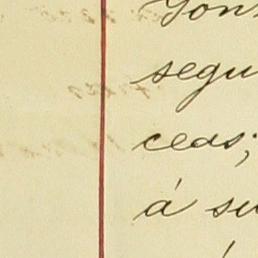 Gon
segu
ceas;
á su